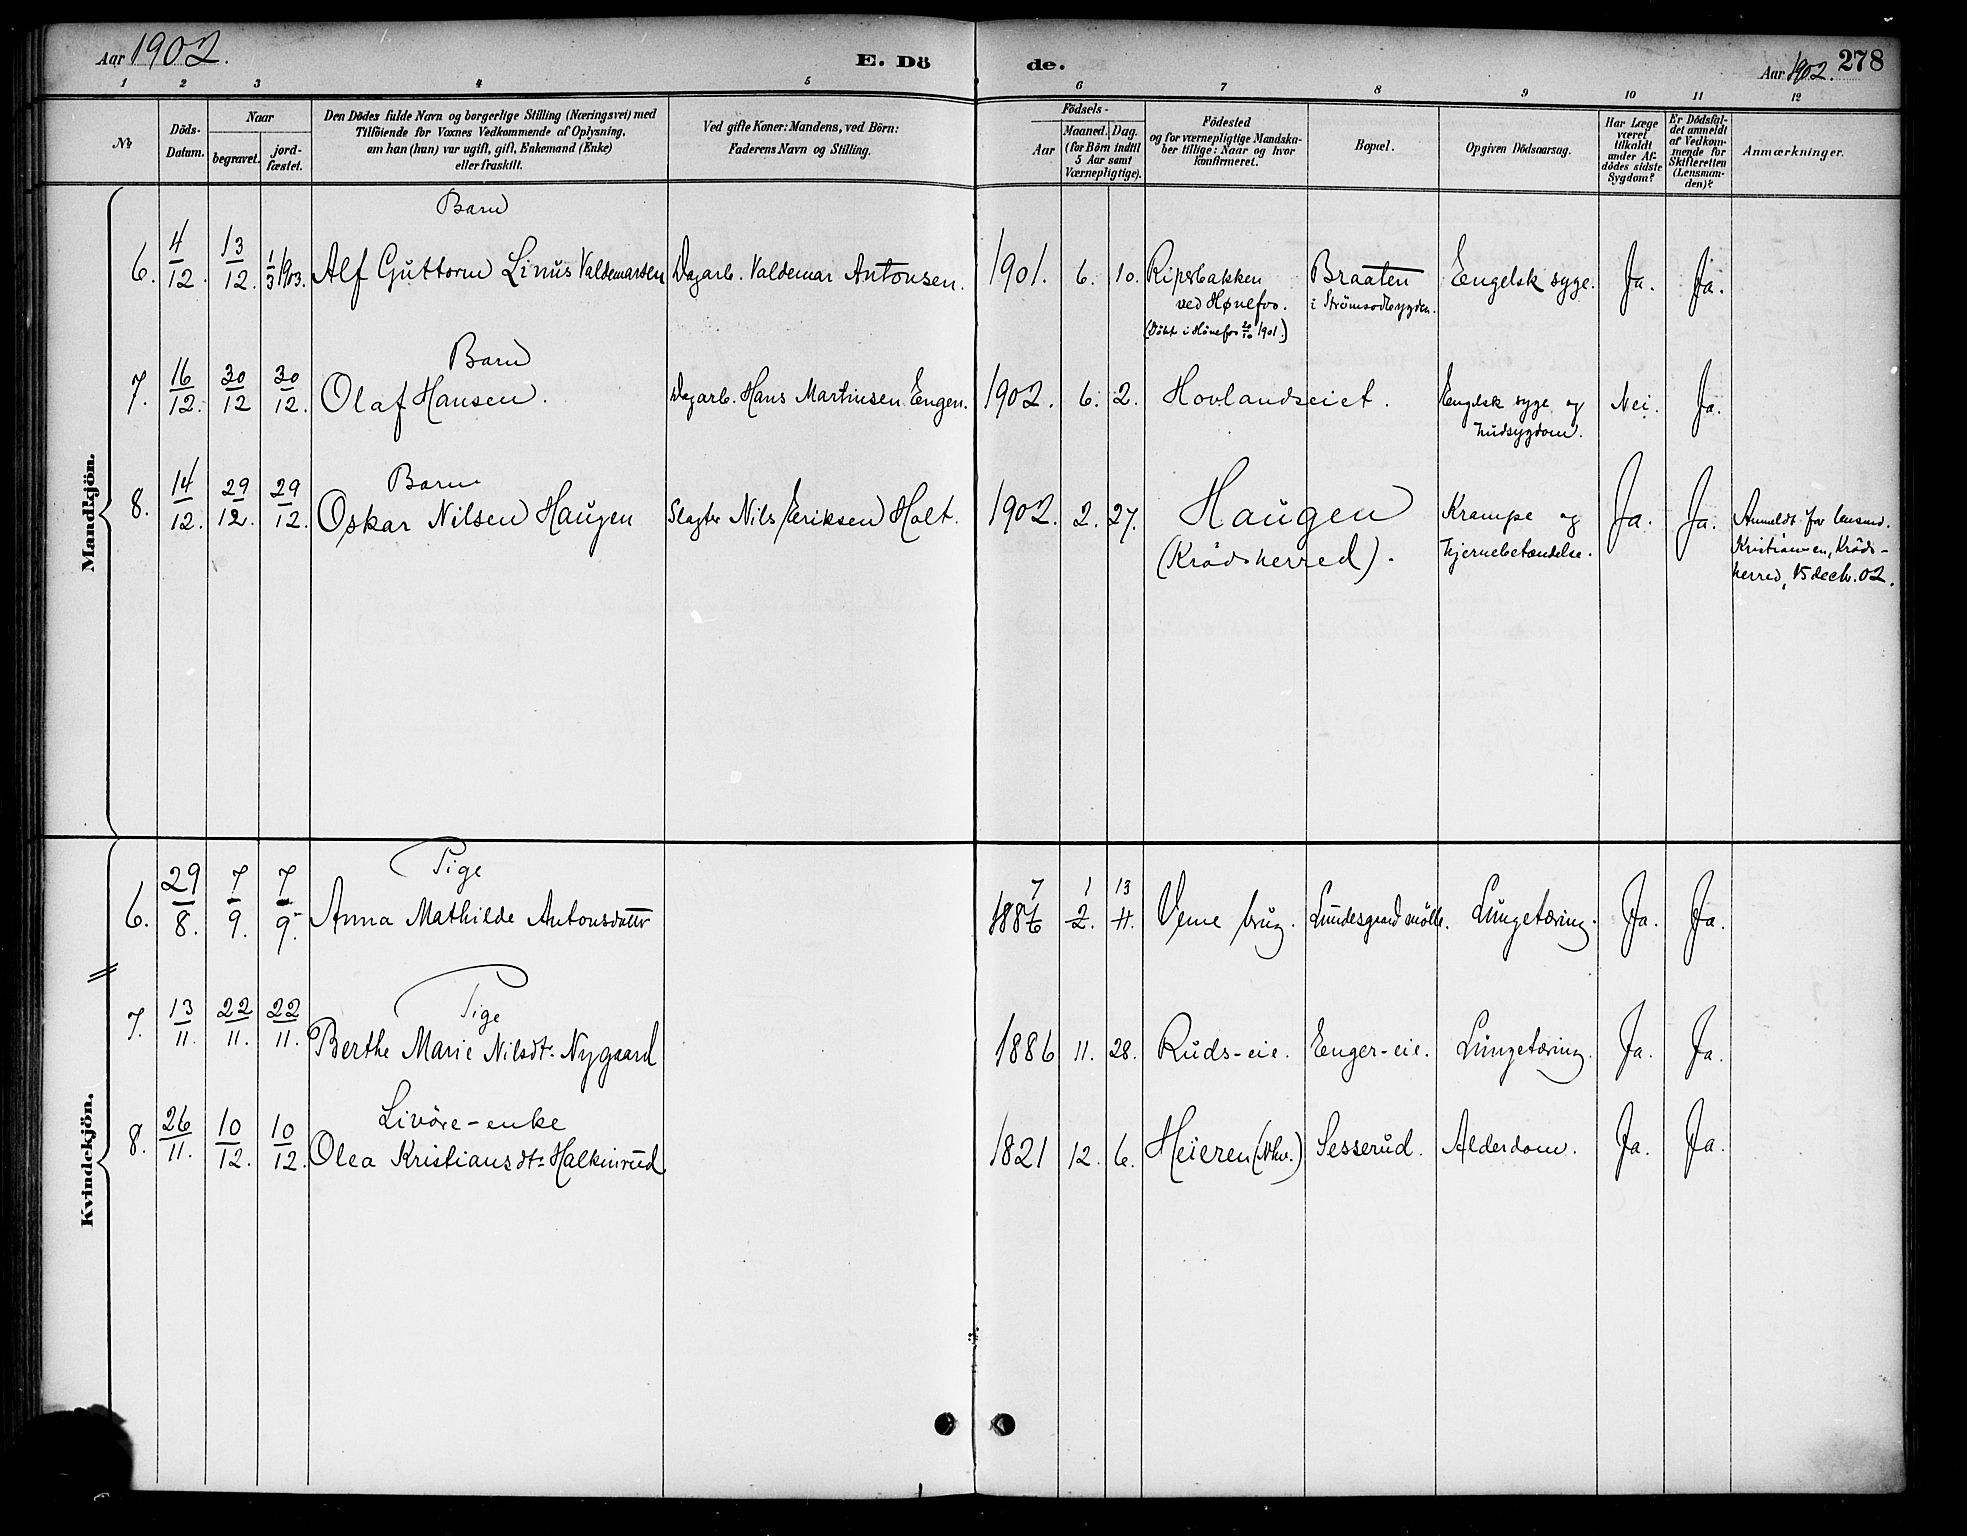 Aar 1902.
E. Dö
de.
Aar 1902. 278
1 2 3 4 5 6 7 8 9 10 11 12
№
Döds-
Datum.
Naar
begravet.
jord-
fæstet.
Den Dödes fulde Navn og borgerlige Stilling (Næringsvei) med
Tilföiende for Voxnes Vedkommende af Oplysning,
om han (hun) var ugift, gift, Enkemand (Enke)
eller fraskilt.
Ved gifte Koner: Mandens, ved Börn:
Faderens Navn og Stilling.
Födsels-
Aar
Maaned. Dag.
(for Börn indtil
5 Aar samt
Værnepligtige).
Födested
og for værnepligtige Mandska-
ber tillige: Naar og hvor
konfirmeret.
Bopæl.
Opgiven Dödsaarsag.
Har Læge
været
tilkaldt
under Af-
dödes sidste
Sygdom?
Er Dödsfal-
det anmeldt
af Vedkom-
mende for
Skifteretten
(Lensman-
den)?
Anmærkninger.
Mandkjön.
Barn
6. 4/12. 13/12. 1/3 1903. Alf Guttorm Linus Valdemarsen Dagarb. Valdemar Antonsen. 1901. 6. 10. Ripsbakken Braaten Engelsk syge. Ja. Ja.
ved Hønefos. i Strømsodbygden.
(Døbt i Hönefos 20/10 1901.)
Barn
7. 16/12. 30/12 30/12. Olaf Hansen. Dagarb. Hans Martinsen Engen. 1902. 6. 2. Hovlandseiet. Engelsk syge og Nei. Ja.
hudsygdom.
Barn
8. 14/12. 29/12. 29/12. Oskar Nilsen Haugen Slagter Nils Eriksen Holt. 1902. 2. 27. Haugen Krampe og Ja. Ja. Anmeldt for lensmd.
(Krödsherred). hjernebetændelse. Kristiansen, Kröds-
herred, 15 decb. 02.
Kvindekjön.
Pige
6. 29/8. 7/9. 7/9. Anna Mathilde Antonsdatter 1886 7 2. 1 11. 13 Veme brug. Lundesgaard mölle. Lungetæring. Ja. Ja.
Pige
7. 13/11. 22/11. 22/11. Berthe Marie Nilsdt. Nygaard 1886 11. 28. Ruds-eie. Enger-eie. Lungetæring. Ja. Ja.
Livöre-enke
8. 26/11. 10/12. 10/12. Olea Kristiansdt. Halkinrud 1821 12. 6. Heieren (Nhv.) Sesserud. Alderdom. Ja. Ja.